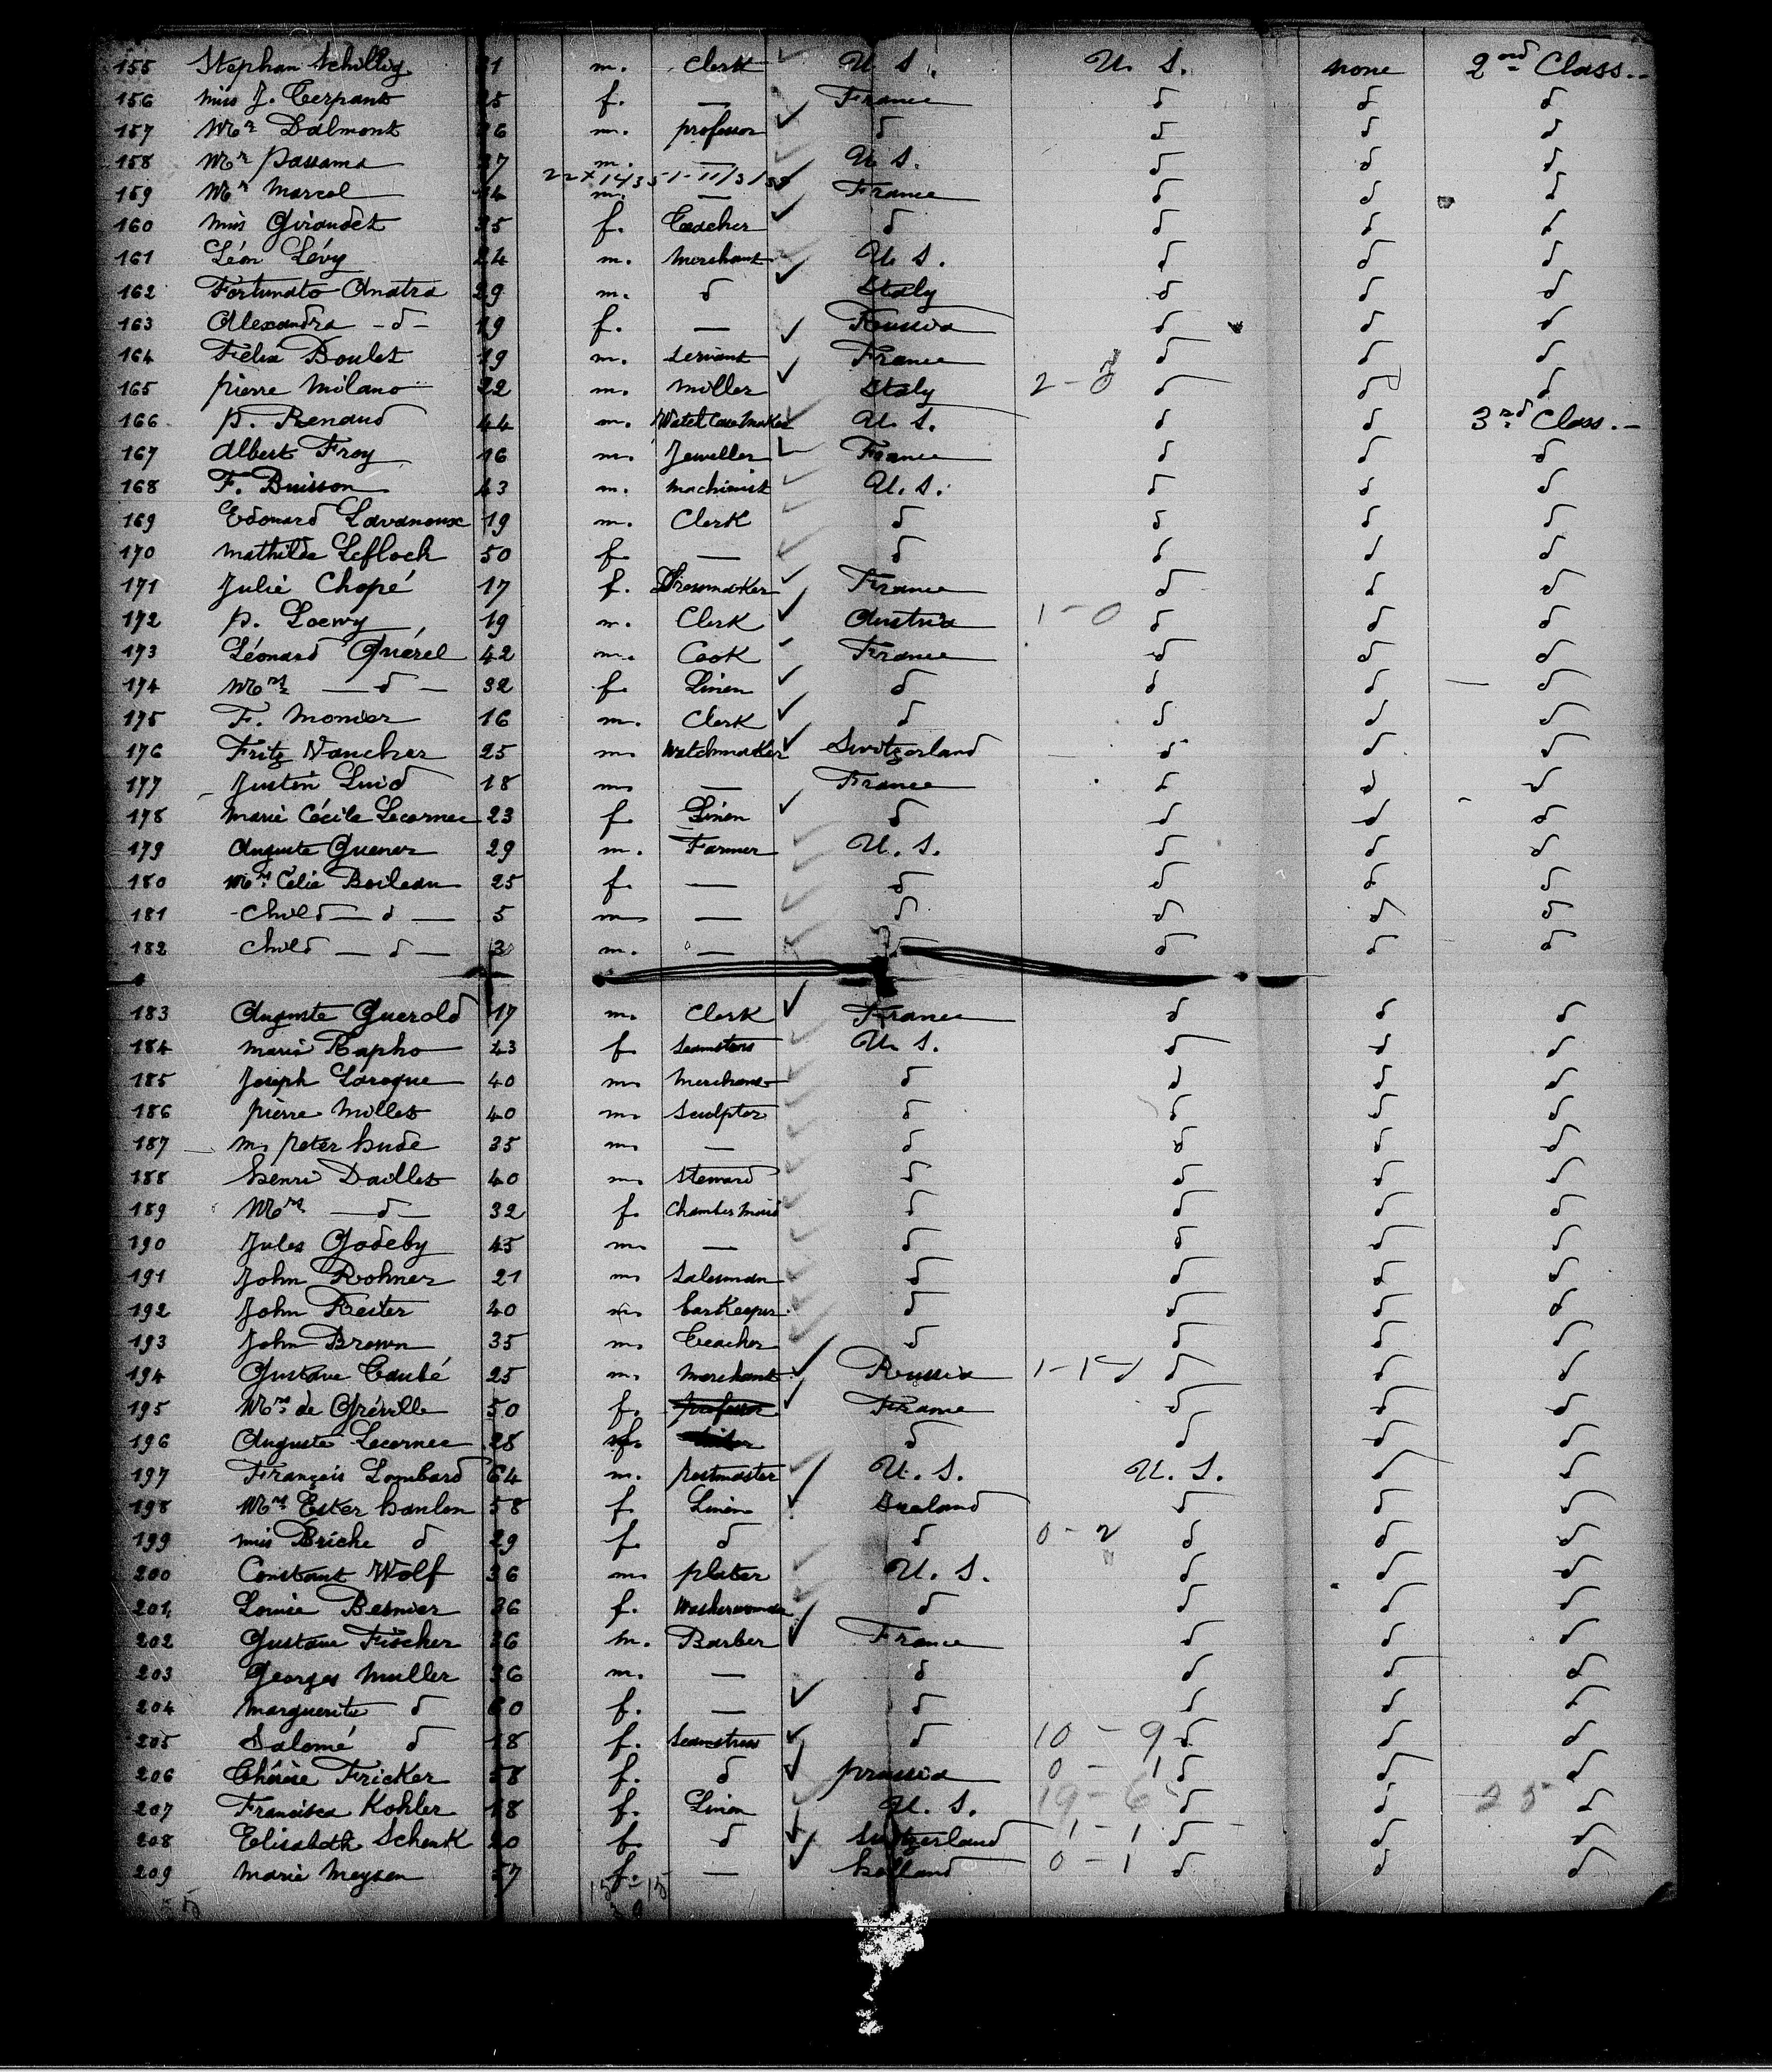 155 Stephan Schillig 31 m. Clerk U. S. U. S. none 2nd Class.-
156 miss J. Cerpant 25 f. — France d d d
157 Mr Dalmont 26 m. professor d d d d
158 Mr passama 37 m. — U. S. d d d
22 x 14351-11/3/
159 Mr Marcel 14 m. — France d d d
160 miss Giraudet 35 f. Teacher d d d d
161 Léon Lévy 24 m. Merchant U. S. d d d
162 Fortunato Anatra 29 m. d Italy d d d
163 Alexandra - d - 19 f. — Russia d d d
164 Félix Boulet 19 m. servant France d d d
165 pierre Milano 22 m. Miller Italy 2 - 0 d d d
166 p. Renaud 44 m. Watch Case Maker U. S. d d 3rd Class.-
167 Albert Froy 16 m. Jeweller France d d d
168 F. Buisson 43 m. machinist U. S. d d d
169 Edouard Lavanoux 19 m. Clerk d d d d
170 Mathilde Lefloch 50 f. — d d d d
171 Julie Chopé 17 f. Dressmaker France d d d
172 p. Loewy 19 m. Clerk Austria 1 - 0 d d d
173 Léonard Quérel 42 m. Cook France d d d
174 Mrs — d — 32 f. Linen d d d d
175 F. Monier 16 m. Clerk d d d d
176 Fritz Vaucher 25 m. Watchmaker Switzerland d d d
177 Justin Luid 18 m. — France d d d
178 Marie Cécile Lecornec 23 f. Linen d d d d
179 Auguste Guener 29 m. Farmer U. S. d d d
180 Mrs Célie Boileau 25 f. — d d d d
181 Child — d — 5 m — d d d d
182 Child — d — 3 m. — d d d d
183 Auguste Guerold 17 m. Clerk France d d d
184 Maria Rapho 43 f. Seamstress U. S. d d d
185 Joseph Laroque 40 m. Merchant d d d d
186 pierre Millet 40 m. Sculptor d d d d
187 m. peter hude 35 m. — d d d d
188 henri Daillet 40 m. Steward d d d d
189 Mrs — d — 32 f. Chamber Maid d d d d
190 Jules Godeby 45 m. — d d d d
191 John Rohner 21 m. Salesman d d d d
192 John Reiter 40 m. barkeeper d d d d
193 John Brown 35 m. Teacher d d d d
194 Gustave Taubé 25 m. Merchant Russia 1 - 1 d d d
195 Mrs de Gréville 50 f. professor France d d d
196 Auguste Lecornec 28 f. d d d d
197 François Lombard 64 m. postmaster U. S. U. S. d d
198 Mrs Ester hanlon 58 f. Linen Ireland d d d
199 miss Briche d 29 f. d d 0 - 2 d d d
200 Constant Wolf 36 m. plater U. S. d d d
201 Louise Besnier 36 f. Washerwoman d d d d
202 Gustave Fischer 26 m. Barber France d d d
203 Georges Muller 36 m. — d d d d
204 Marguerite d 60 f. — d d d d
205 Salomé d 18 f. Seamstress d 10 - 9 d d d
206 Thérèse Fricker 58 f. d prussia 0 - 1 d d d
207 Francisca Kohler 18 f. Linen U. S. 19 - 6 d d 25 d
208 Elisabeth Schenk 20 f. d Switzerland 1 - 1 d d d
209 Marie Meysen 57 f. — holland 0 - 1 d d d
15 - 15